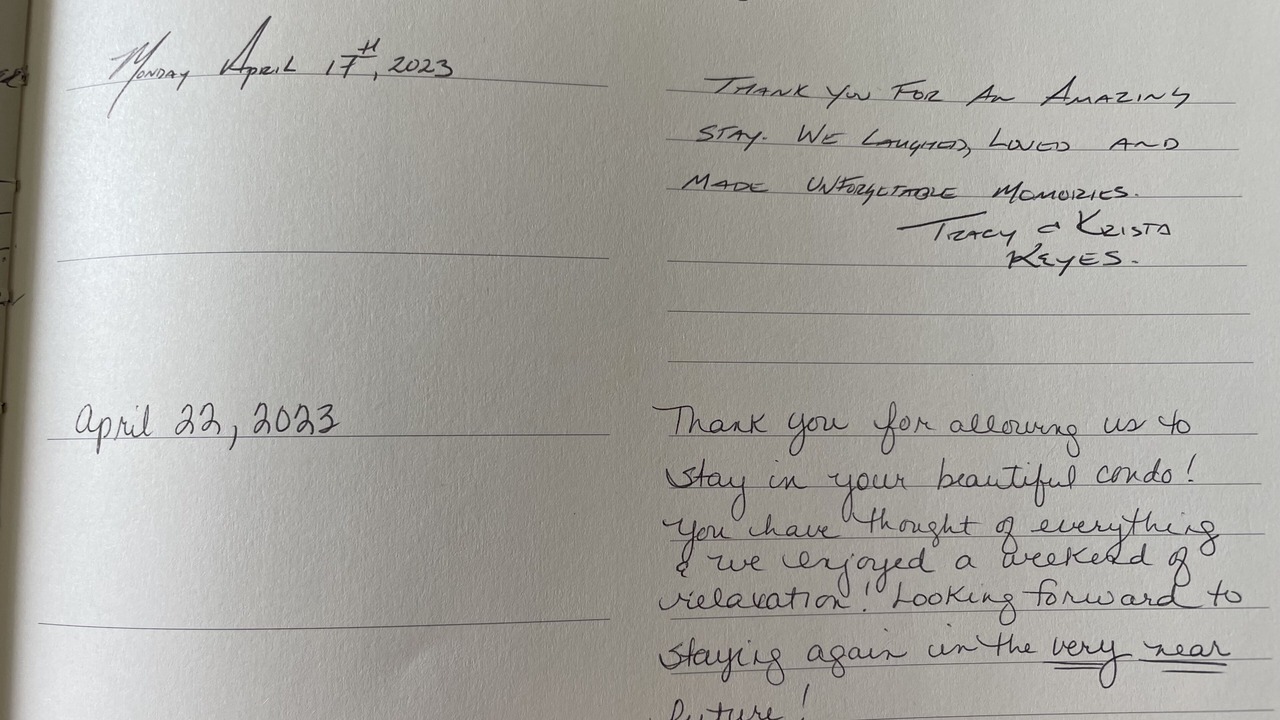 Monday April 17th, 2023
THANK YOU FOR AN AMAZING
STAY. WE LAUGHED, LOVED AND
MADE UNFORGETABLE MEMORIES.
TRACY & KRISTA
KEYES.
April 22, 2023
Thank you for allowing us to
stay in your beautiful condo!
You have thought of everything
& we enjoyed a weekend of
relaxation! Looking forward to
staying again in the very near
future!